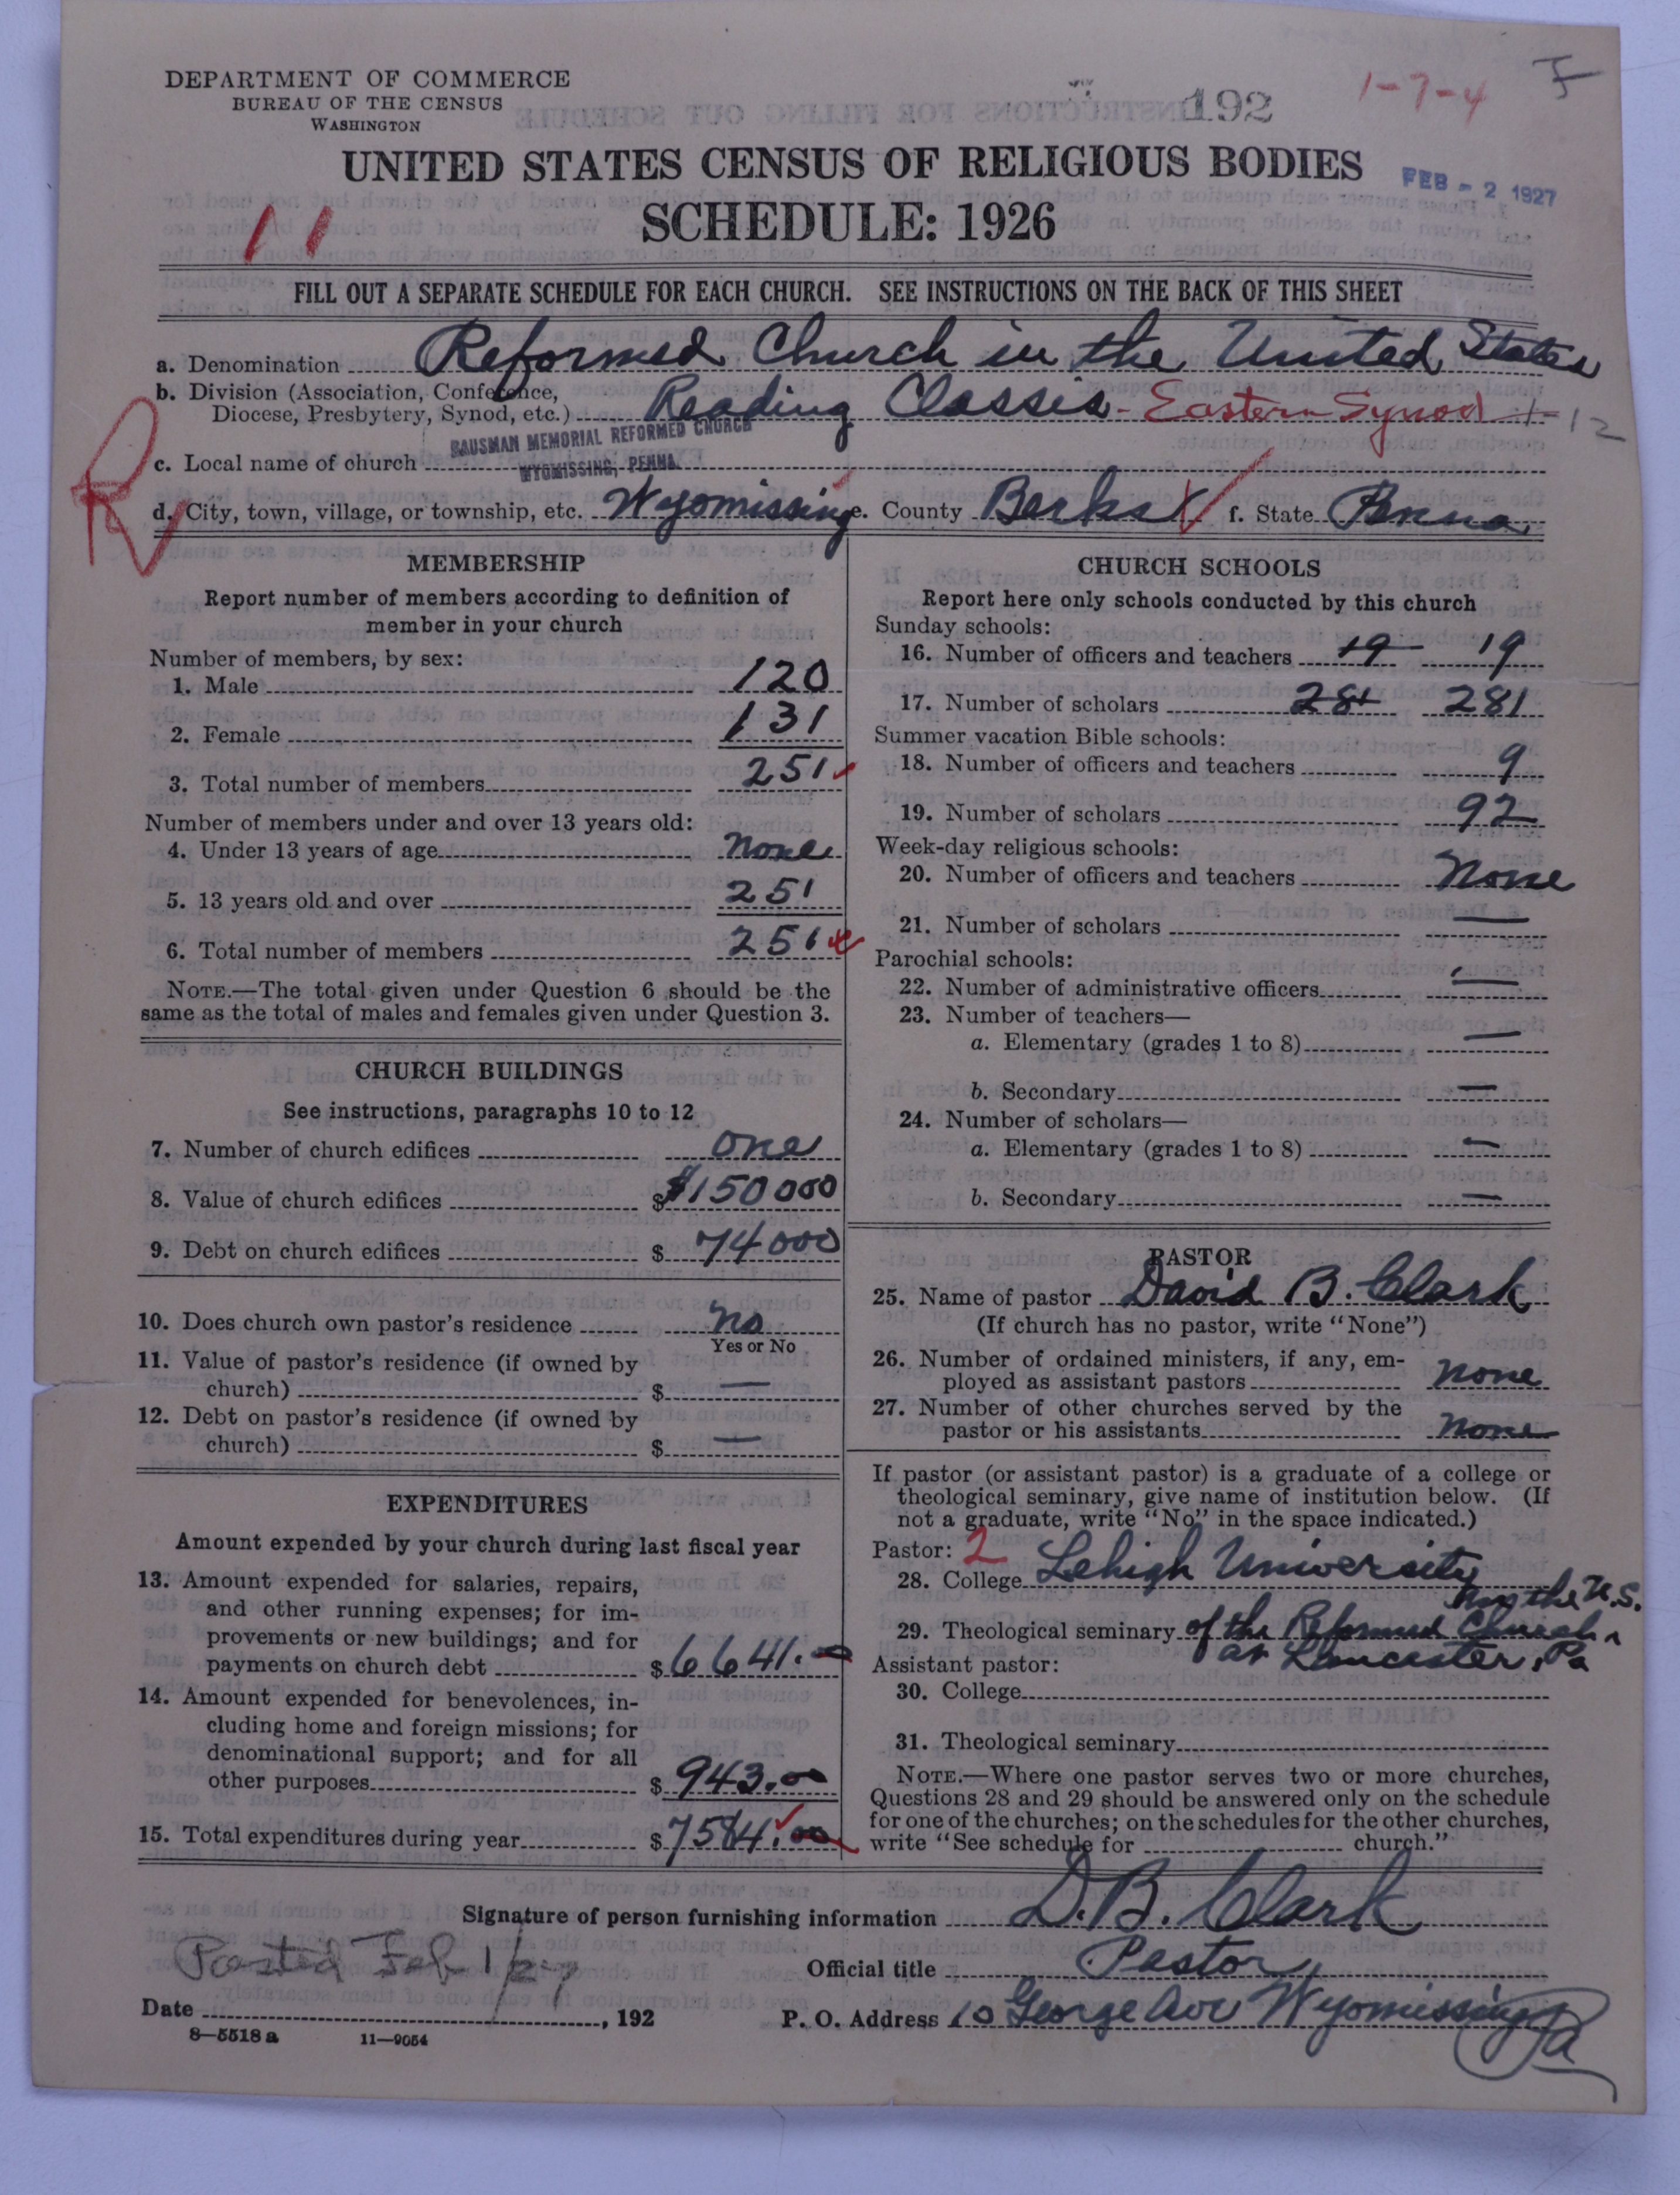 DEPARTMENT OF COMMERCE
BUREAU OF THE CENSUS
WASHINGTON
192
1-7-4
UNITED STATES CENSUS OF RELIGIOUS BODIES
FEB - 2 1927
SCHEDULE: 1926
11
FILL OUT A SEPARATE SCHEDULE FOR EACH CHURCH. SEE INSTRUCTIONS ON THE BACK OF THIS SHEET
a. Denomination Reformed Church in the United States
b. Division (Association, Conference,
Diocese, Presbytery, Synod, etc.) Reading Classis - Eastern Synod 1-12
BAUSMAN MEMORIAL REFORMED CHURCH
c. Local name of church
WYOMISSING, PENNA.
R
d. City, town, village, or township, etc. Wyomissing e. County Berks f. State Penna.
MEMBERSHIP
Report number of members according to definition of
member in your church
Number of members, by sex:
1. Male 120
2. Female 131
3. Total number of members 251
Number of members under and over 13 years old:
4. Under 13 years of age None
5. 13 years old and over 251
6. Total number of members 251
NOTE.—The total given under Question 6 should be the
same as the total of males and females given under Question 3.
CHURCH BUILDINGS
See instructions, paragraphs 10 to 12
7. Number of church edifices one
8. Value of church edifices $ $150000
9. Debt on church edifices $ 74000
10. Does church own pastor's residence No
Yes or No
11. Value of pastor's residence (if owned by
church) $ —
12. Debt on pastor's residence (if owned by
church) $ —
EXPENDITURES
Amount expended by your church during last fiscal year
13. Amount expended for salaries, repairs,
and other running expenses; for im-
provements or new buildings; and for
payments on church debt $ 6641.00
14. Amount expended for benevolences, in-
cluding home and foreign missions; for
denominational support; and for all
other purposes $ 943.00
15. Total expenditures during year $ 7584.00
CHURCH SCHOOLS
Report here only schools conducted by this church
Sunday schools:
16. Number of officers and teachers 19 19
17. Number of scholars 281 281
Summer vacation Bible schools:
18. Number of officers and teachers 9
19. Number of scholars 92
Week-day religious schools:
20. Number of officers and teachers None
21. Number of scholars —
Parochial schools:
22. Number of administrative officers —
23. Number of teachers—
a. Elementary (grades 1 to 8) —
b. Secondary —
24. Number of scholars—
a. Elementary (grades 1 to 8) —
b. Secondary —
PASTOR
25. Name of pastor David B. Clark
(If church has no pastor, write "None")
26. Number of ordained ministers, if any, em-
ployed as assistant pastors None
27. Number of other churches served by the
pastor or his assistants None
If pastor (or assistant pastor) is a graduate of a college or
theological seminary, give name of institution below. (If
not a graduate, write "No" in the space indicated.)
Pastor: 2
28. College Lehigh University
in the U.S.
29. Theological seminary of the Reformed Church
at Lancaster, Pa
Assistant pastor:
30. College
31. Theological seminary
NOTE.—Where one pastor serves two or more churches,
Questions 28 and 29 should be answered only on the schedule
for one of the churches; on the schedules for the other churches,
write "See schedule for church."
Signature of person furnishing information D. B. Clark
Posted Feb 1/27
Official title Pastor
Date , 192
P. O. Address 10 George Ave Wyomissing Pa
8—5518 a 11—9054